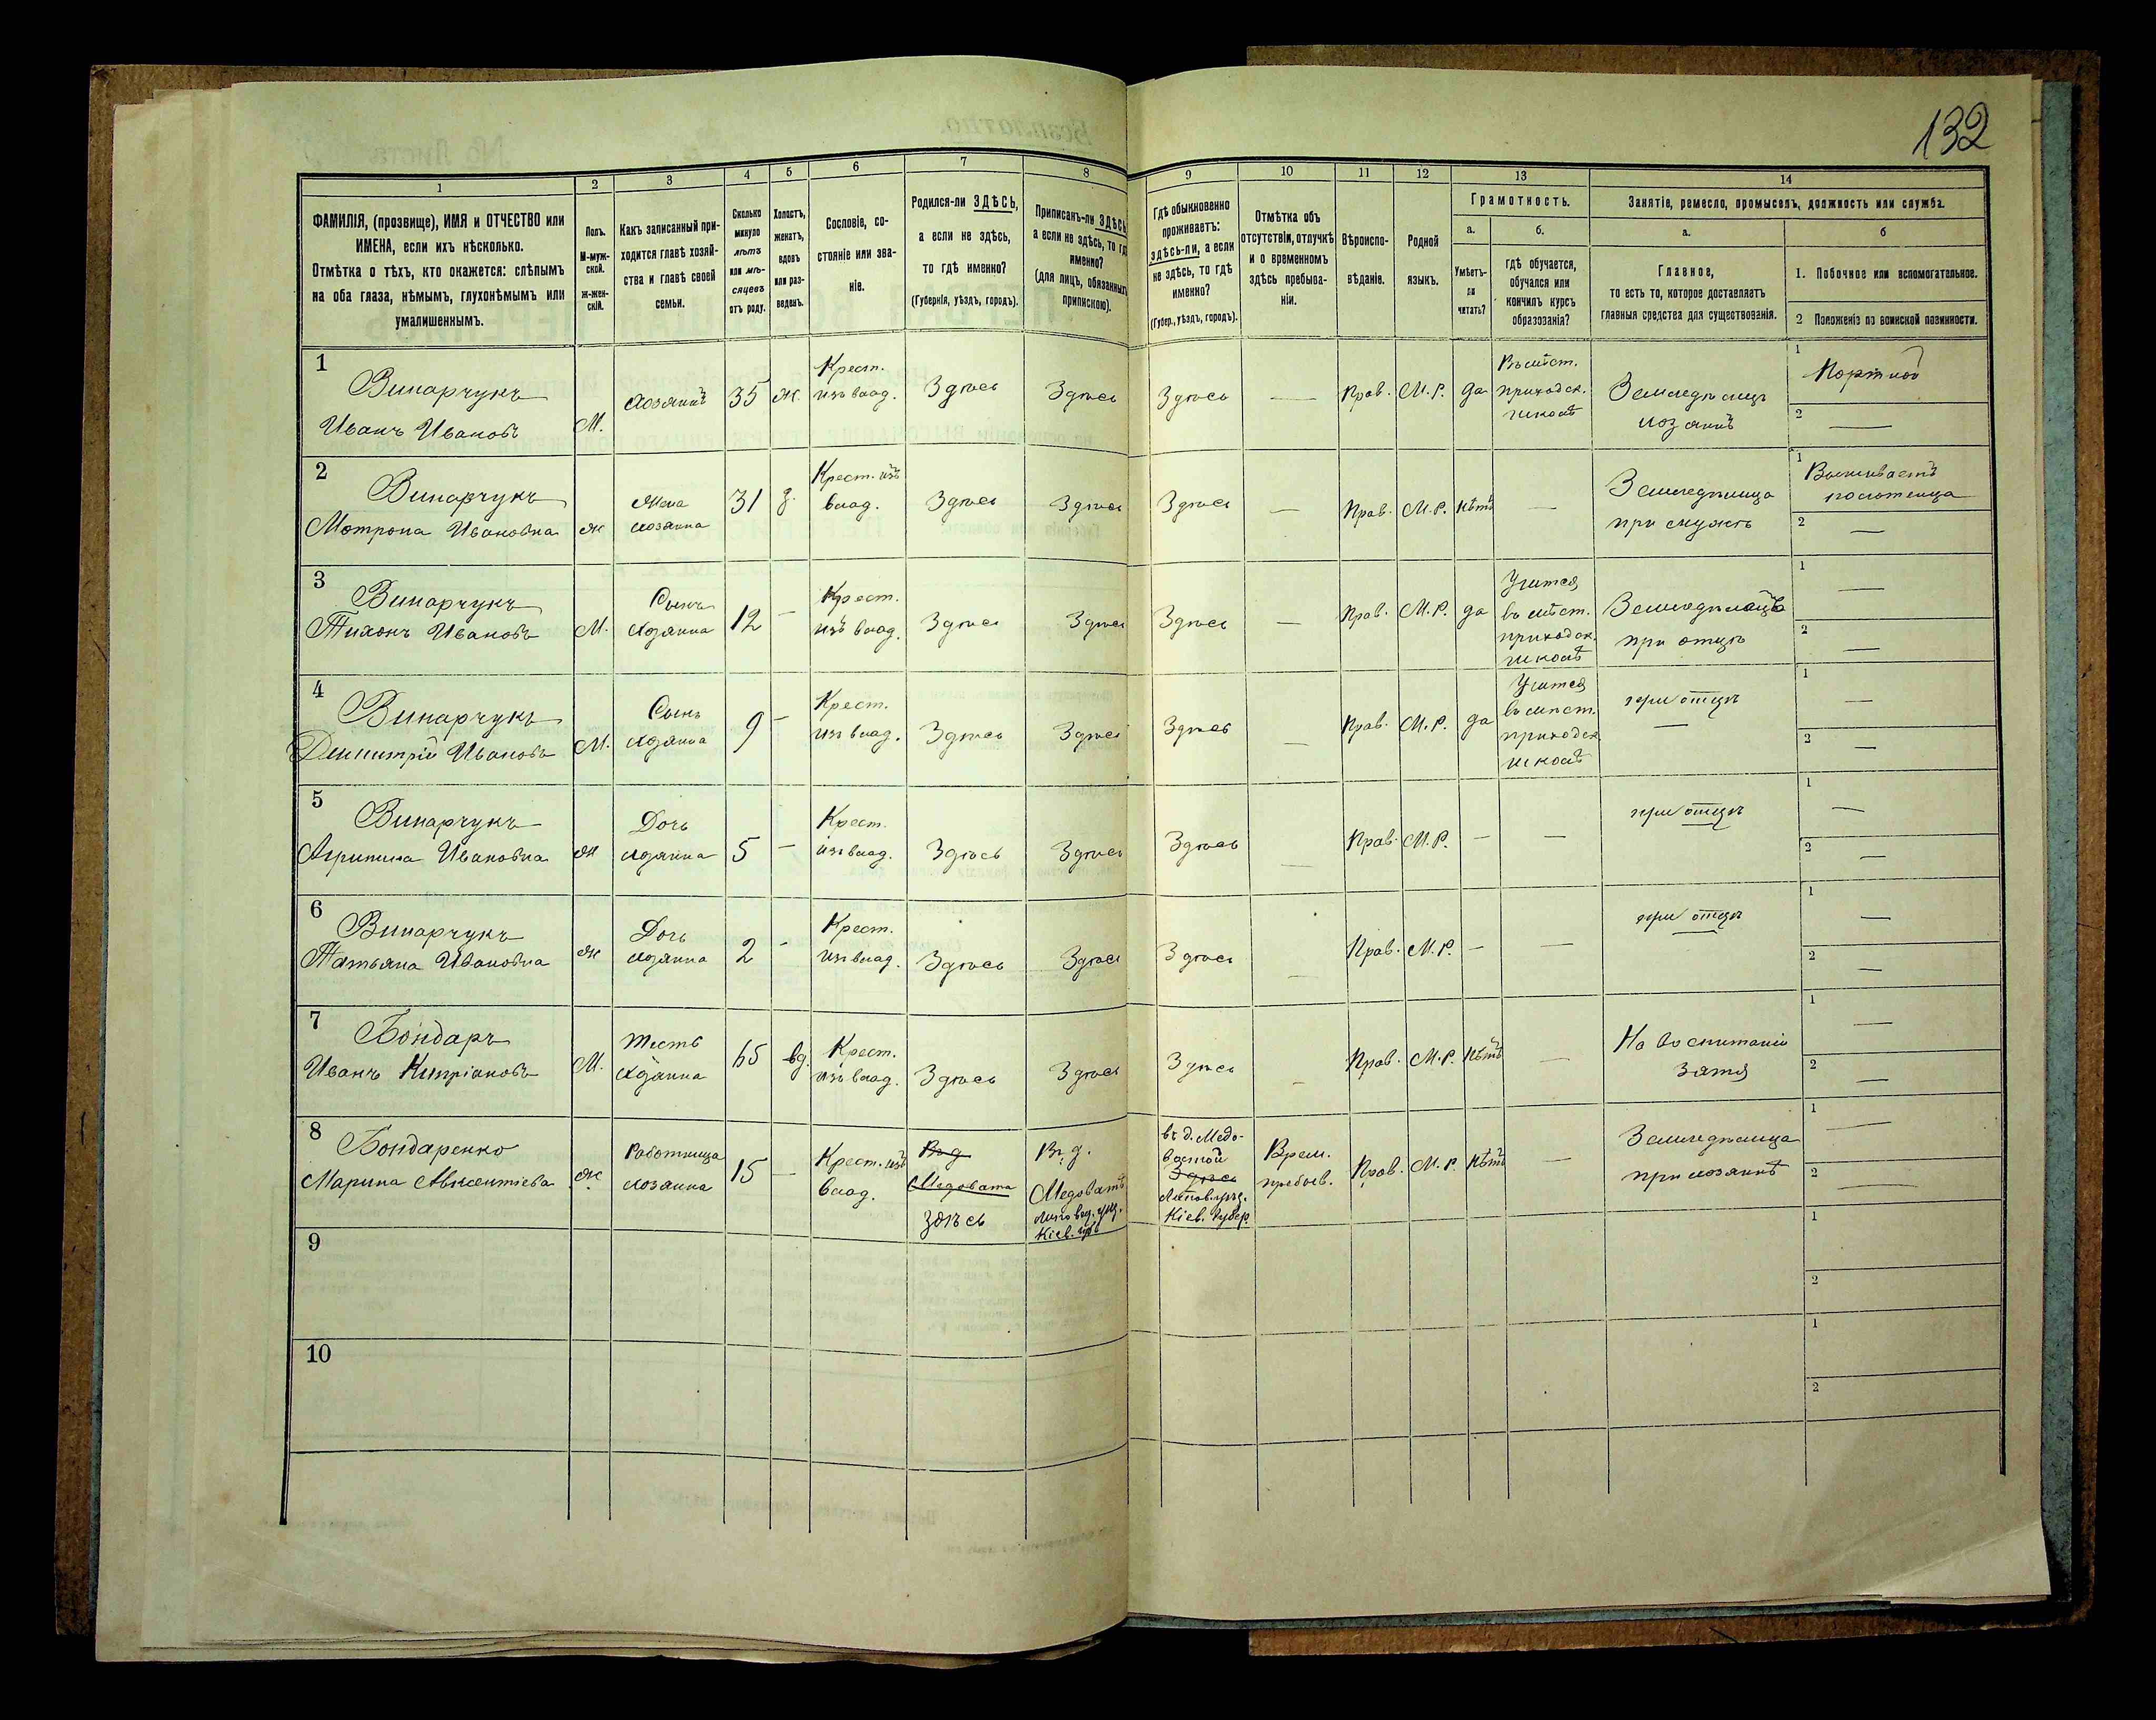 132
1
2
3
4
5
6
7
8
9
10
11
12
13
14
ФАМИЛІЯ, (прозвище), ИМЯ и ОТЧЕСТВО или
ИМЕНА, если ихъ нѣсколько.
Отмѣтка о тѣхъ, кто окажется: слѣпымъ
на оба глаза, нѣмымъ, глухонѣмымъ или
умалишеннымъ.
Полъ.
М-муж-
ской.
ж-жен-
скій.
Какъ записанный при-
ходится главѣ хозяй-
ства и главѣ своей
семьи.
Сколько
минуло
лѣтъ
или мѣ-
сяцевъ
отъ роду.
Холостъ,
женатъ,
вдовъ
или раз-
веденъ.
Сословіе, со-
стояніе или зва-
ніе.
Родился-ли ЗДѢСЬ,
а если не здѣсь,
то гдѣ именно?
(Губернія, уѣздъ, городъ).
Приписанъ-ли ЗДѢСЬ
а если не здѣсь, то гдѣ
именно?
(для лицъ, обязанныхъ
припискою).
Гдѣ обыкновенно
проживаетъ:
здѣсь-ли, а если
не здѣсь, то гдѣ
именно?
(Губер., уѣздъ, городъ).
Отмѣтка объ
отсутствіи, отлучкѣ
и о временномъ
здѣсь пребыва-
ніи.
Вѣроиспо-
вѣданіе.
Родной
языкъ.
Грамотность.
а.
Умѣетъ-
ли
читать?
б.
гдѣ обучается,
обучался или
кончилъ курсъ
образованія?
Занятіе, ремесло, промыселъ, должность или служба.
а.
Главное,
то есть то, которое доставляетъ
главныя средства для существованія.
б
1. Побочное или вспомогательное.
2 Положеніе по воинской повинности.
1
Винарчукъ
Иванъ Ивановъ
М.
Хозяинъ
35
ж.
Крест.
изъ влад.
Здѣсь
Здѣсь
Здѣсь
—
Прав.
М.Р.
да
Въ мѣст.
приходск.
школѣ
Земледѣлецъ
хозяинъ
1 Портной
2 —
2
Винарчукъ
Мотрона Ивановна
ж
Жена
хозяина
31
з.
Крест. изъ
влад.
Здѣсь
Здѣсь
Здѣсь
—
Прав.
М.Р.
нѣтъ
—
Земледѣлица
при мужѣ
1 Вышиваетъ
полотенца
2 —
3
Винарчукъ
Тихонъ Ивановъ
М.
Сынъ
хозяина
12
—
Крест.
изъ влад.
Здѣсь
Здѣсь
Здѣсь
—
Прав.
М.Р.
да
Учится
въ мѣст.
приходск.
школѣ
Земледѣлецъ
при отцѣ
1 —
2 —
4
Винарчукъ
Димитрій Ивановъ
М.
Сынъ
хозяина
9
—
Крест.
изъ влад.
Здѣсь
Здѣсь
Здѣсь
—
Прав.
М.Р.
да
Учится
въ мѣст.
приходск.
школѣ
при отцѣ
1 —
2 —
5
Винарчукъ
Агрипина Ивановна
ж
Дочь
хозяина
5
—
Крест.
изъ влад.
Здѣсь
Здѣсь
Здѣсь
—
Прав.
М.Р.
—
—
при отцѣ
1 —
2 —
6
Винарчукъ
Татьяна Ивановна
ж
Дочь
хозяина
2
—
Крест.
изъ влад.
Здѣсь
Здѣсь
Здѣсь
—
Прав.
М.Р.
—
—
при отцѣ
1 —
2 —
7
Бондарь
Иванъ Кипріановъ
М.
Тесть
хозяина
65
вд.
Крест.
изъ влад.
Здѣсь
Здѣсь
Здѣсь
—
Прав.
М.Р.
нѣтъ
—
На воспитаніи
зятя
1 —
2 —
8
Бондаренко
Марина Авксентіева
ж
Работница
хозяина
15
—
Крест. изъ
влад.
Въ д
Медовата
здѣсь
Въ д.
Медоватѣ
Липовец. уѣз.
Кіев. губ
въ д. Медо-
ватой
Здѣсь
Липов. уѣз.
Кіев. губер
Врем.
пребыв.
Прав.
М.Р.
нѣтъ
—
Земледѣлица
при хозяинѣ
1 —
2 —
9
1
2
10
1
2